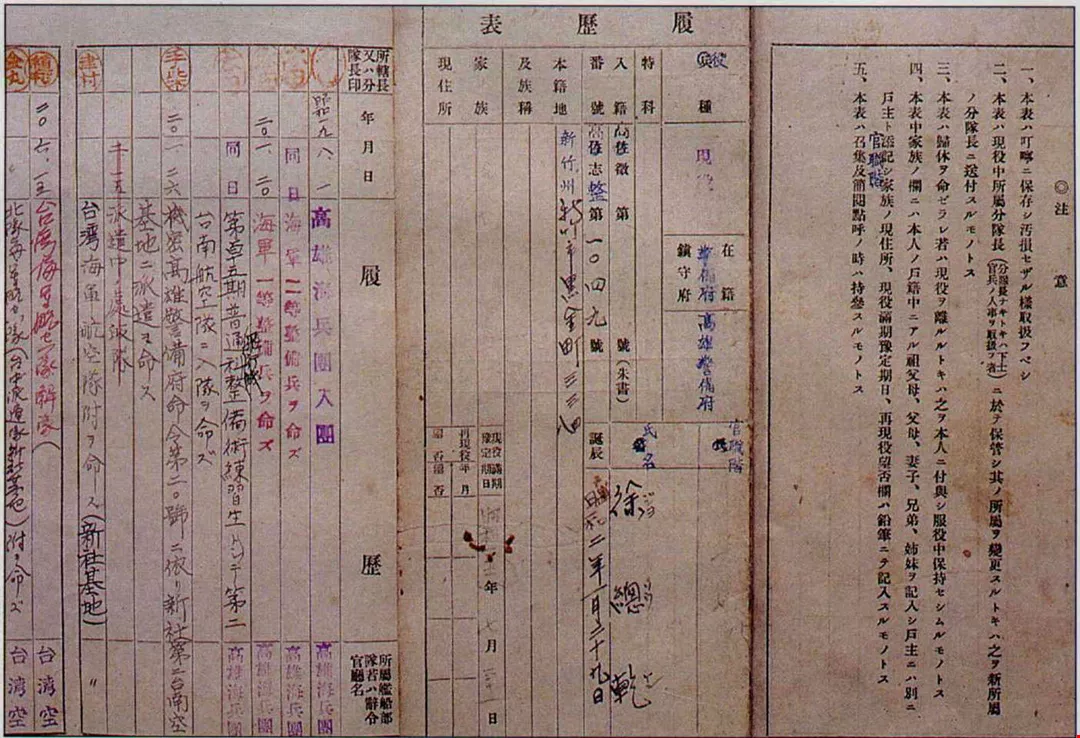 ◎注意
一、本表ハ叮嚀ニ保存シ汚損セザル樣取扱フベシ
二、本表ハ現役中所屬分隊長(分隊長ナキトキハ下士官兵ノ人事ヲ取扱フ者)ニ於テ保管シ其ノ所屬ヲ變更スルトキハ之ヲ新所屬
ノ分隊長ニ送付スルモノトス
三、本表ハ歸休ヲ命ゼラレ若ハ現役ヲ離ルルトキハ之ヲ本人ニ付與シ服役中保持セシムルモノトス
四、本表中家族ノ欄ニハ本人ノ戶籍中ニアル祖父母、父母、妻子、兄弟、姊妹ヲ記入シ戶主ニハ別ニ
戶主ト添記シ家族ノ現住所、現役滿期豫定期日、再現役望否欄ハ鉛筆ニテ記入スルモノトス
官職階
五、本表ハ召集及簡閱點呼ノ時ハ持參スルモノトス
履歷表
兵種
現役
在籍鎮守府
警備府
高雄警備府
官職階
特科
入籍番號
高徵第
號(朱書)
高志整第一〇四九號
氏名
徐總乾
本籍地
新竹州新竹市黑金町三三四
誕辰
昭和二年一月二十九日
及族稱
家族
現住所
現役滿期豫定期日
年
月
日
再現役年月
所轄長又ハ分隊長印
年月日
履歷
所屬艦船部隊若ハ辭令官廳名
昭一九、八、一
高雄海兵團入團
高雄海兵團
同日
海軍二等整備兵ヲ命ズ
高雄海兵團
二〇、一、二〇
海軍一等整備兵ヲ命ズ
高雄海兵團
同日
第五期普通科整備術練習生トシテ第二
飛行機
高雄海兵團
台南航空隊ニ入隊ヲ命ズ
二〇、一、二六
機密高雄警備府命令第二〇號ニ依リ新社
第二台南空
基地ニ派遣ヲ命ズ
派遣中ノ處
台湾海軍航空隊附ヲ命ズ(新社基地)
〃
二〇、六、
台湾海軍航空隊解隊
台湾空
台湾空